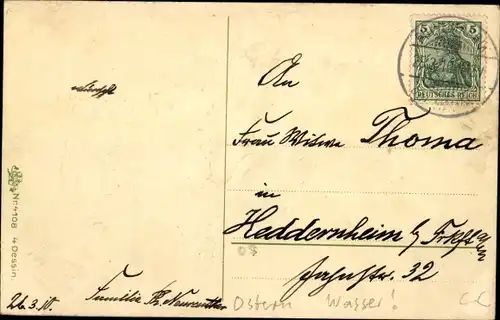 5
DEUTSCHES REICH
An
Frau Witwe Thoma
in
Heddernheim b/ Frkft a/M
Jahnstr. 32
Nr. 4108 4 Dessin.
26.3.10.
Familie
Ostern Wasser!